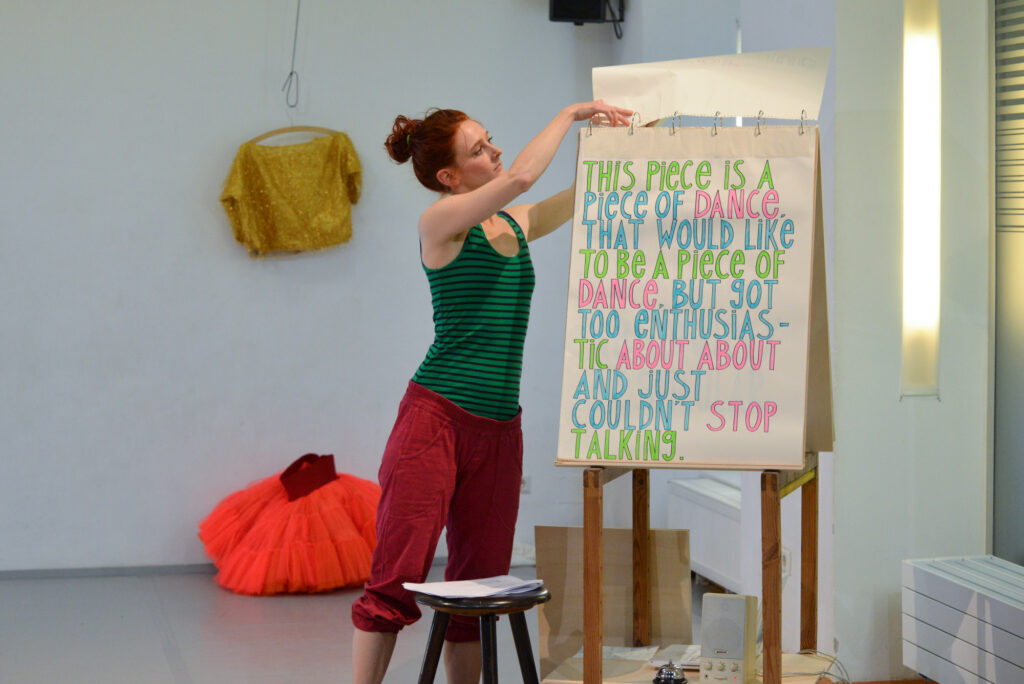 THIS PIECE IS A
PIECE OF DANCE,
THAT WOULD LIKE
TO BE A PIECE OF
DANCE, BUT GOT
TOO ENTHUSIAS-
TIC ABOUT ABOUT
AND JUST
COULDN'T STOP
TALKING.